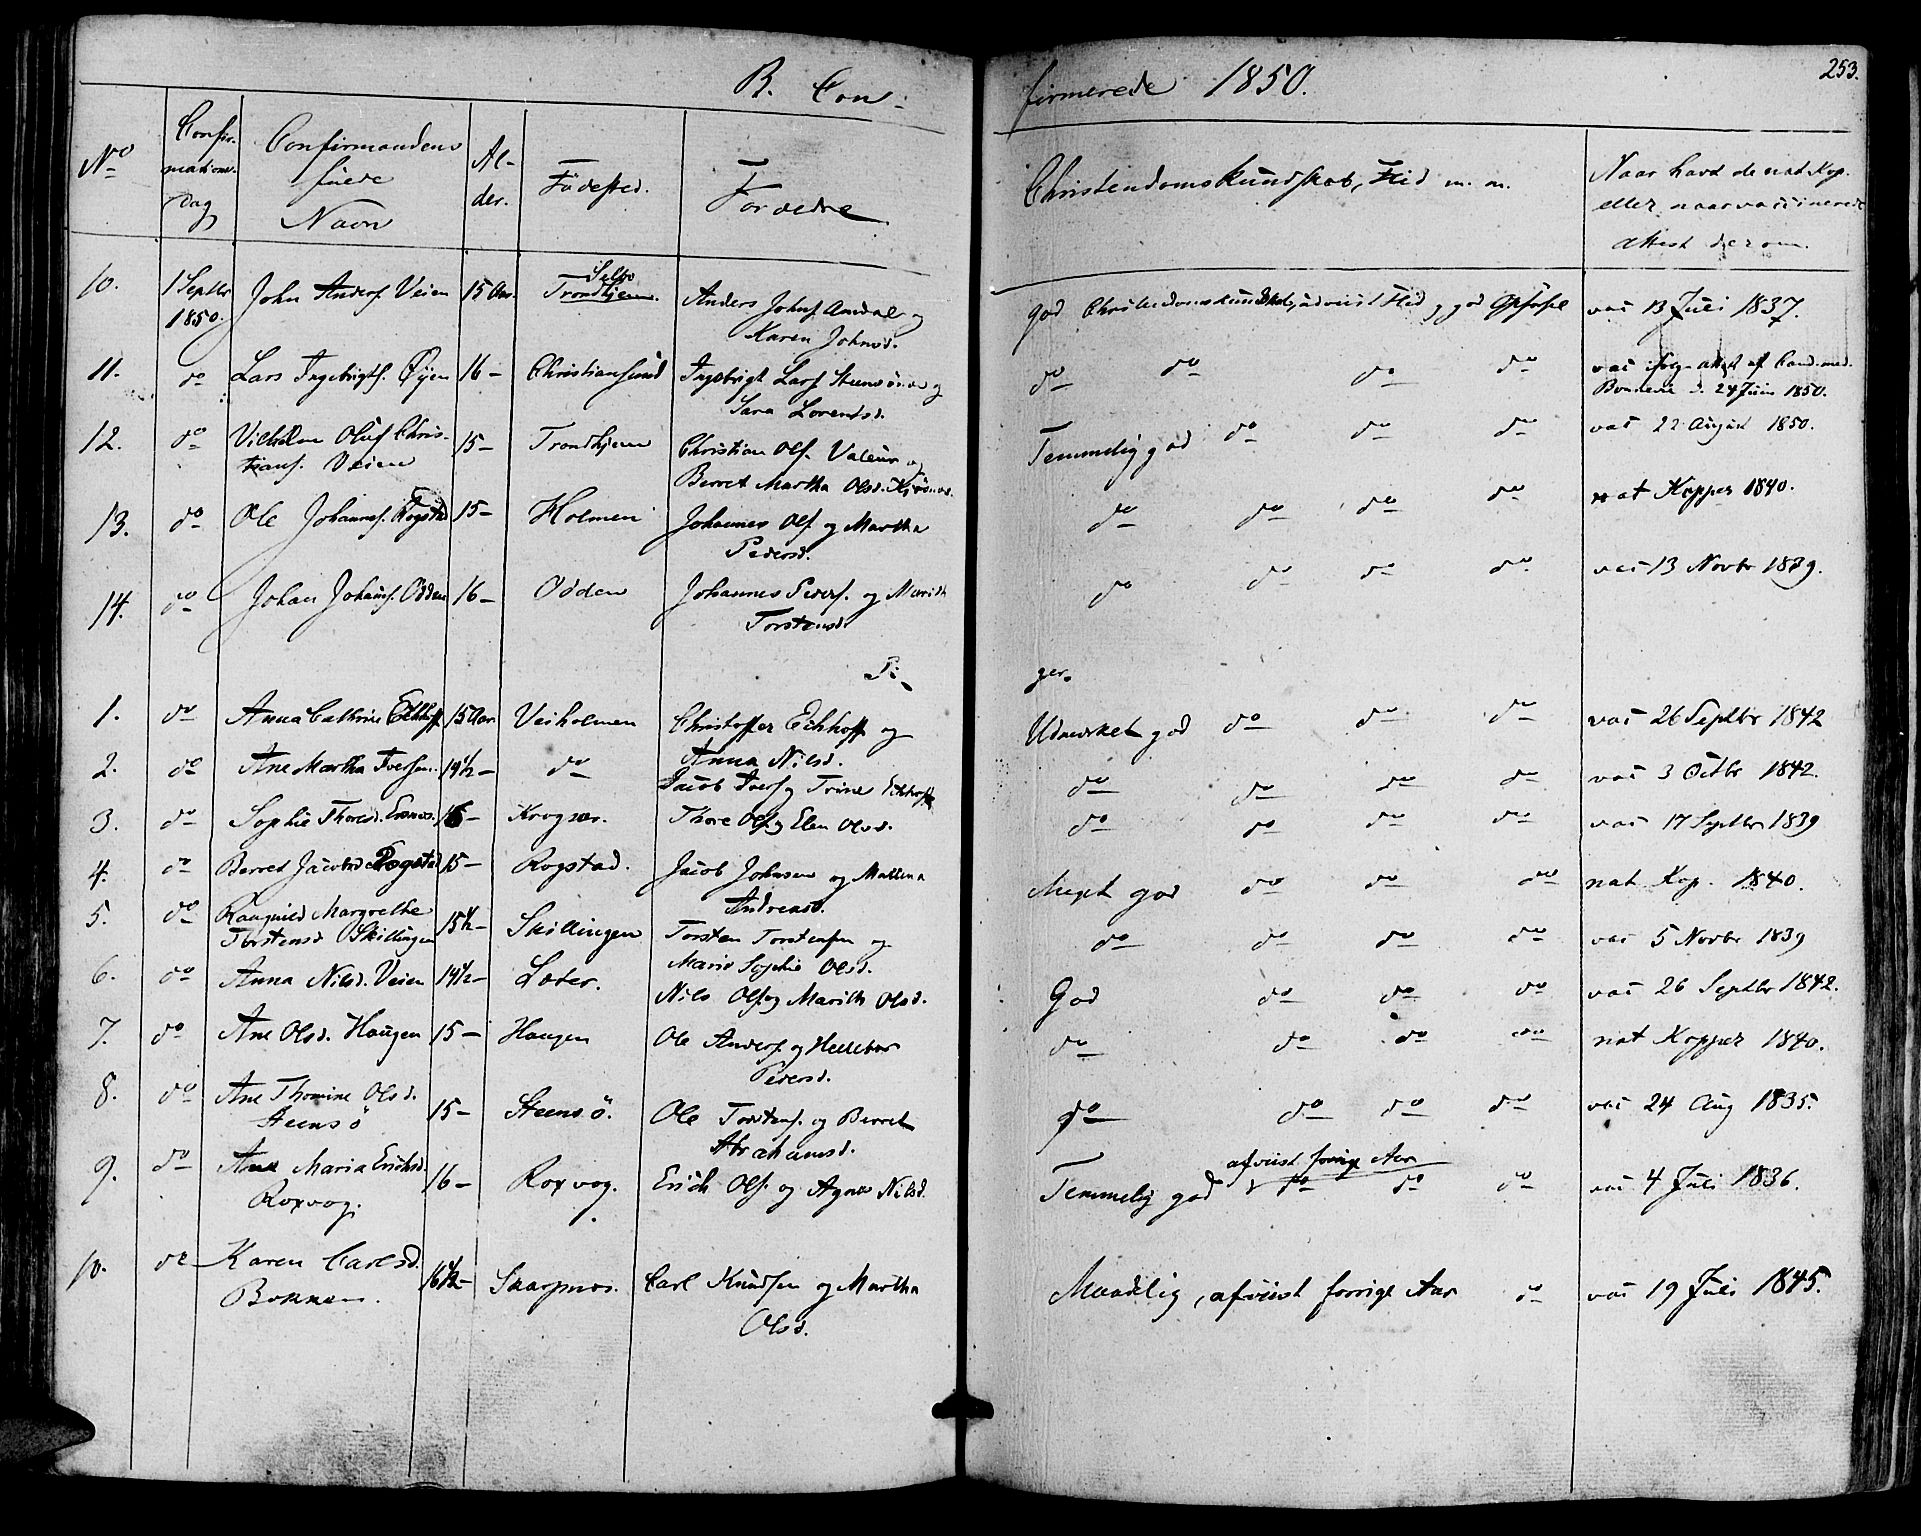 253.
B. Con-
firmerede 1850.
No
Confir-
mations-
Dag
Confirmandens
fulde
Navn
Al-
der.
Födested.
Forældre
Christendomskundskab, Flid m. m.
Naar havt de nat. Kop.
eller naar vaccinerede
Attest derom.
10. 1 Septbr 1850. John Anders. Veien 15 Aar. Selbo Trondhjem. Anders Johns. Amdal og
Karen Johnsd.
God Christendomskundskab, udviist Flid og god Opførsel vac 13 Juli 1837.
11. do Lars Ingebrigts. Øyen 16 - Christiansund Ingebrigt Lars. Steensönæs og
Sara Lorentsd.
do do do do vac ifølge attest af Cand. med.
d. 24 Juni 1850.
12. do Vilhelm Oluf Chris-
tians. Veien 15 - Trondhjem Christian Ols. Valeur og
Berret Martha Olsd.
Temmelig god do do do vac 22 August 1850.
13. do Ole Johanns. Rogstad 15 - Holmen Johannes Ols. og Martha
Pedersd.
do do do do nat Kopper 1840.
14. do Johan Johans. Odden 16 - Odden Johannes Peders. og Marith
Torstensd.
do do do do vac 13 Novbr 1839.
Pi-
ger.
1. do Anna Cathrine Eckhoff 15 Aar Veiholmen Christoffer Eckhoff og
Anna Nilsd.
Udmærket god do do do vac 26 Septbr 1842
2. do Ane Martha Iversen. 14½ - do Jacob Ivers. og Trine Eckhoff
do do do do vac 3 Octbr 1842.
3. do Sophie Thoresd. 16 - Krognæs. Thore Ols. og Elen Olsd.
do do do do vac 17 Septbr 1839
4. do Berret Jacobsd. Rogstad 15 - Rogstad. Jacob Johnsen og Mallena
Andreasd.
Meget god do do do nat Kop. 1840.
5. do Raugnild Margrethe
Torstensd Skillingen 15½ - Skillingen Torsten Torstensen og
Marie Sophie Olsd.
do do do do vac 5 Novbr 1839
6. do Anna Nilsd. Veien 14½ - Læter. Nils Ols. og Marith Olsd.
God do do do vac 26 Septbr 1842.
7. do Ane Olsd. Haugen 15 - Haugen Ole Anders. og Hellebor
Pedersd.
do do do do nat Kopper 1840.
8. do Ane Thomine Olsd.
Steensö 15 - Steensö. Ole Torstens. og Berret
Abrahamsd.
do do do do vac 24 Aug 1835.
9. do Ane Maria Erichsd.
Roxvog. 16 - Roxvog. Erich Ols. og Agnæ Nilsd.
afviist forrige Aar
Temmelig god do do do vac 4 Juli 1836.
10. do Karen Carlsd.
16½ - Skarpnæs. Carl Knudsen og Martha
Olsd.
Maadelig, afviist forrige Aar do vac 19 Juli 1845.